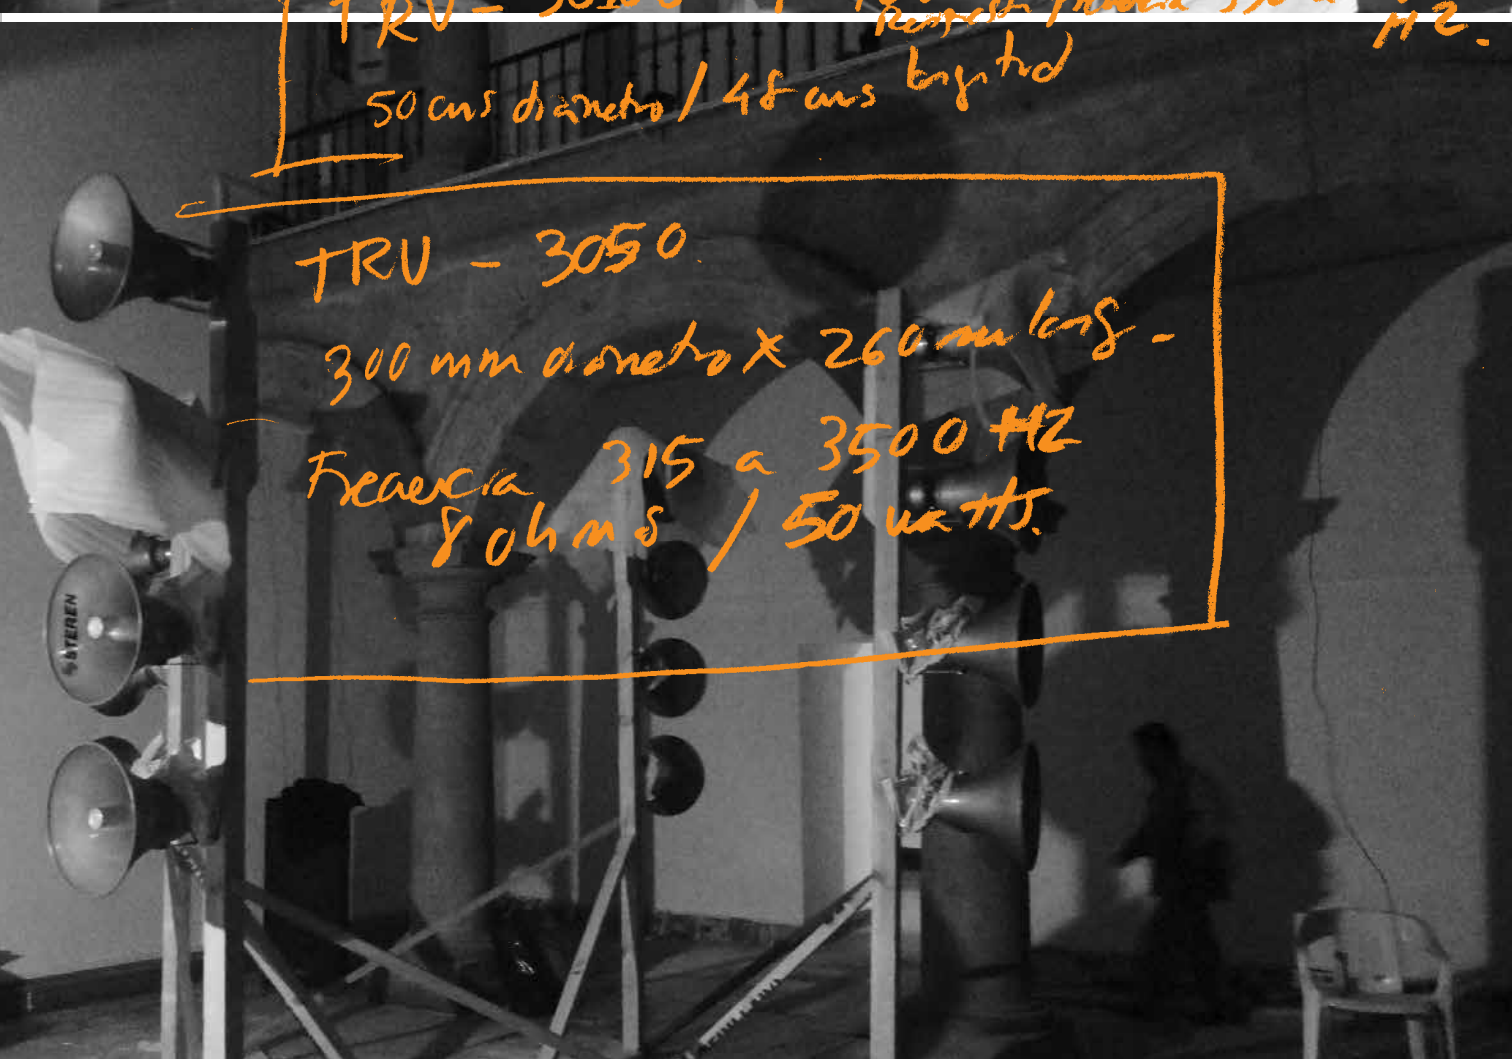 TRV -
Hz.
50 cms diámetro / 48 cms longitud
TRV - 3050.
300 mm diámetro x 260 mm long.
Frecuencia 315 a 3500 HZ
8 ohms / 50 watts.
STEREN